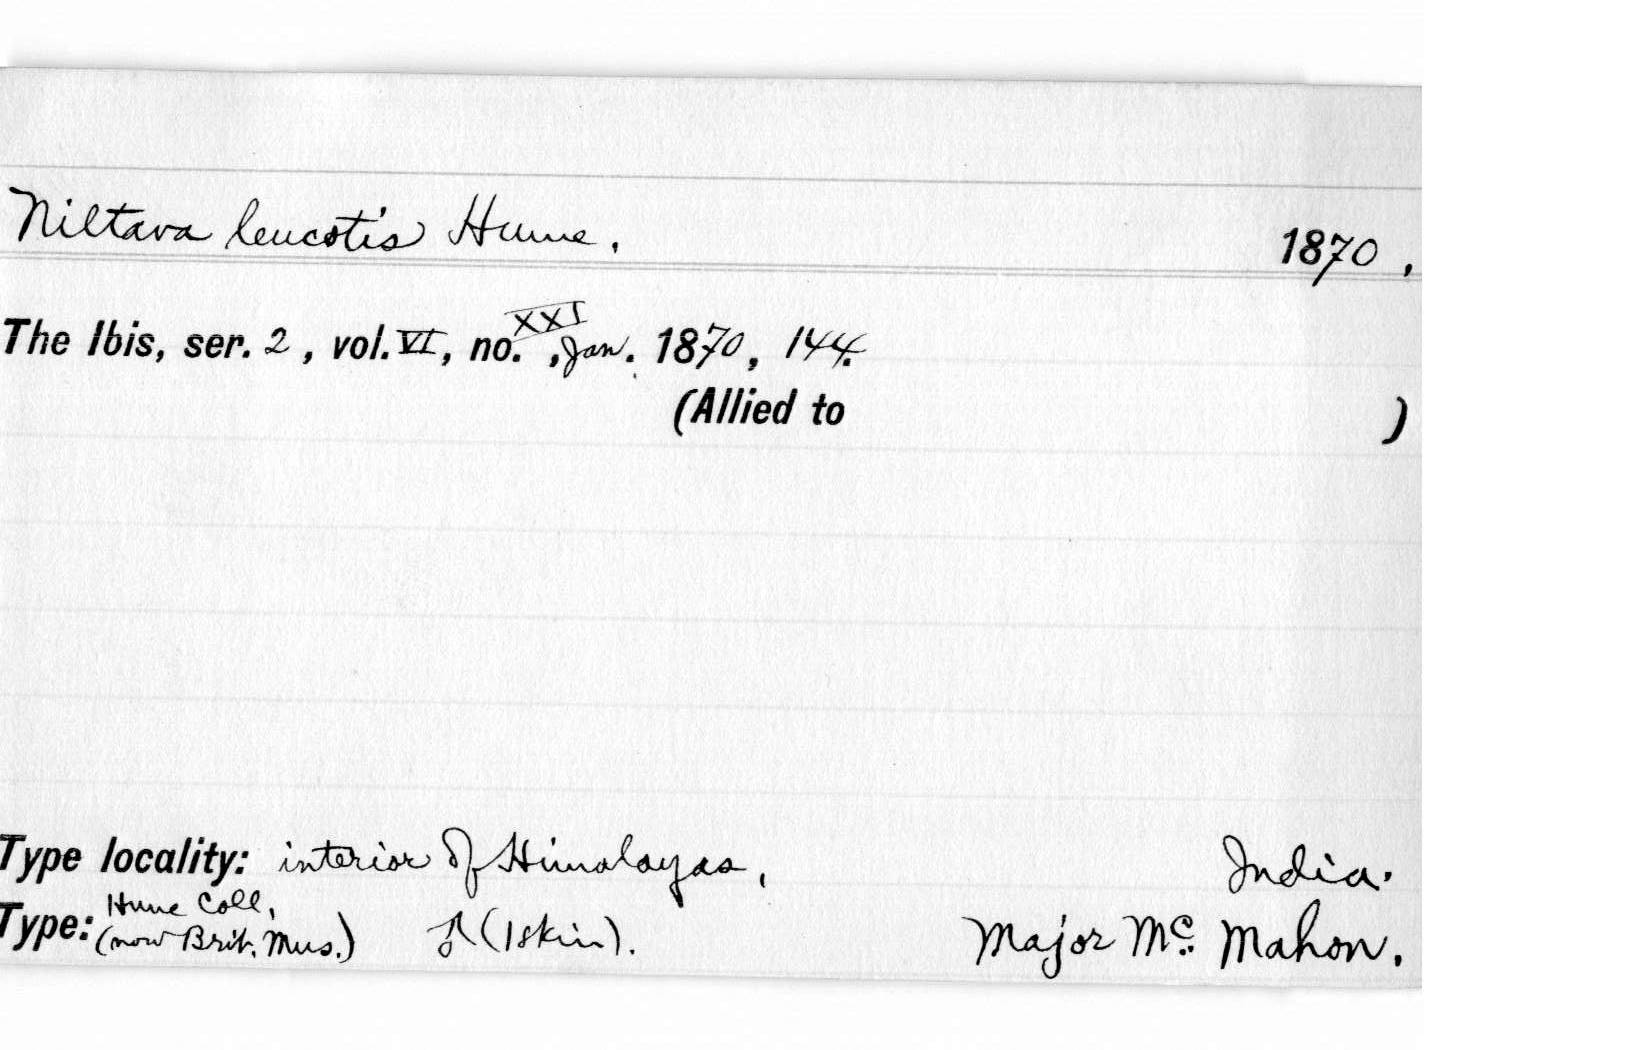 Niltava leucotis Hume. 1870.
The Ibis, ser. 2, vol. VI, no. XXI, Jan. 1870, 144.
(Allied to )
Type locality: interior of Himalayas, India.
Type: Hume Coll, (now Brit. Mus.) (1 skin). Major Mc. Mahon.